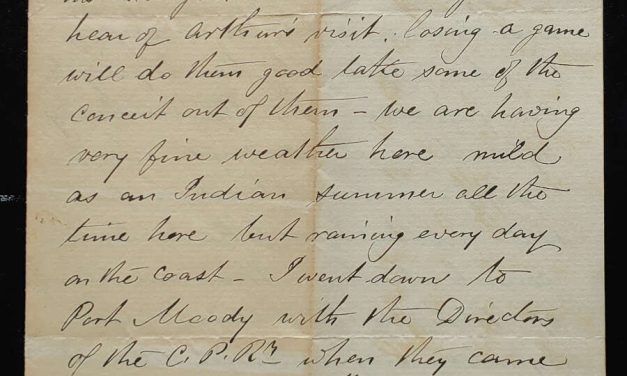 hear of Arthur's visit. losing a game
will do them good take some of the
conceit out of them – we are having
very fine weather here mild
as an Indian summer all the
time here but raining every day
on the coast – I went down to
Port Moody with the Directors
of the C. P. Ry when they came